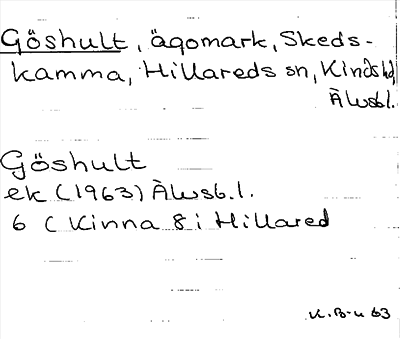 Göshult, ägomark, Skeds-
kamma, Hillareds sn, Kinds hd,
Älvsb.l.
Göshult
ek (1963) Älvsb.l.
6 ( Kinna 8 i Hillared
K.B-u 63